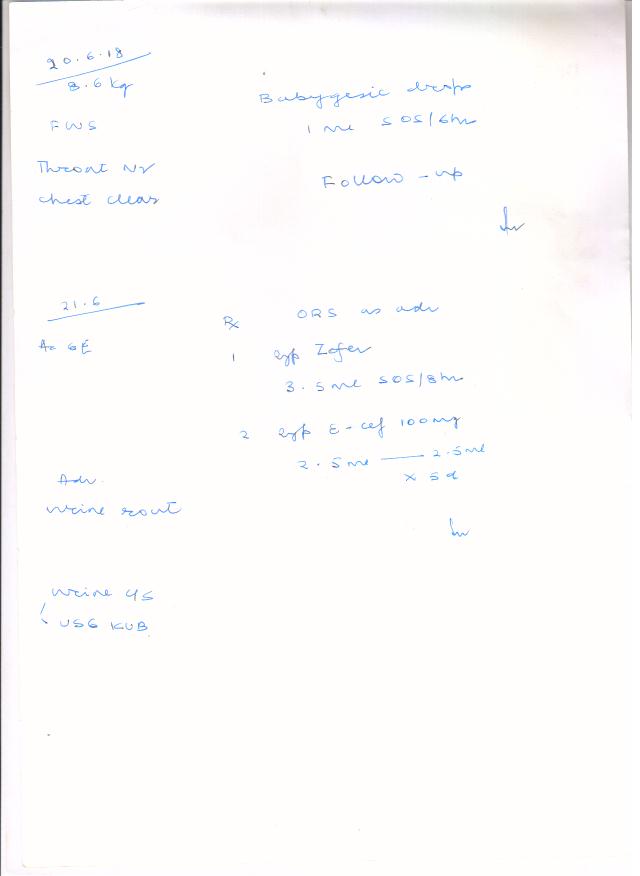 20.6.18
8.6 kg
FWS
Throat Nr
chest clear
Babygesic drops
1 ml SOS/6hr
Follow-up
21.6
Ac GE
Rx ORS as adv
1 syp Zofer
3.5 ml SOS/8hr
2 syp E-cef 100mg
2.5 ml — 2.5 ml
x 5d
Adv.
urine rout
urine c/s
USG KUB